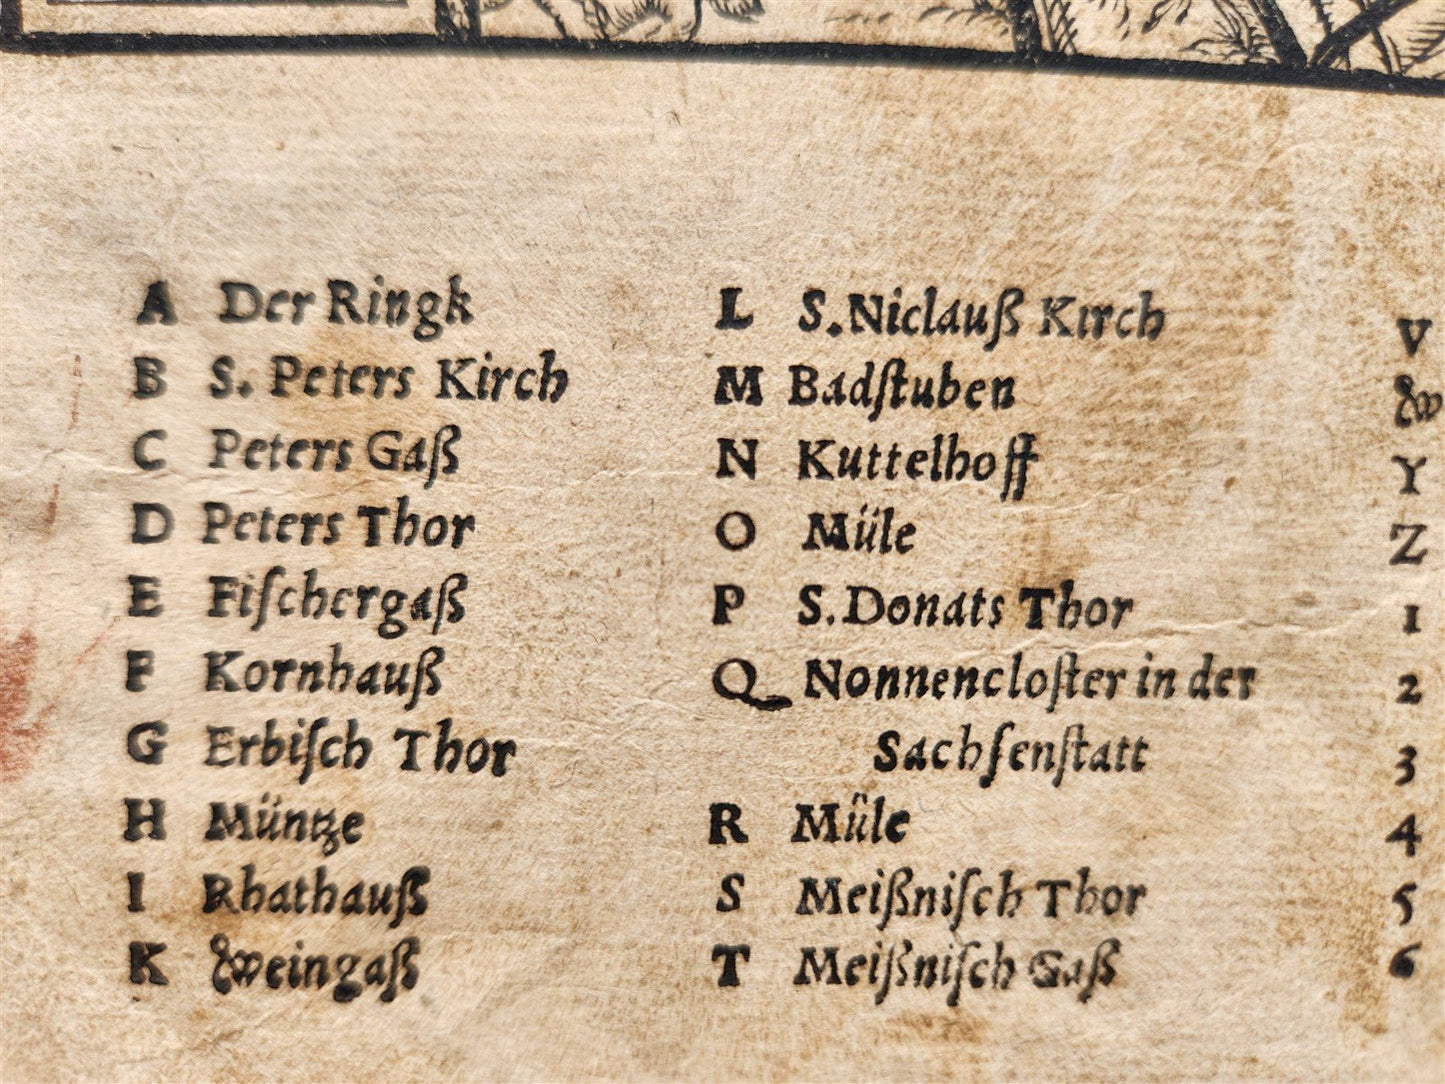 A Der Ringk
B S. Peters Kirch
C Peters Gaß
D Peters Thor
E Fiſchergaß
F Kornhauß
G Erbiſch Thor
H Müntze
I Rhathauß
K Weingaß
L S. Niclauß Kirch
M Badſtuben
N Kuttelhoff
O Müle
P S. Donats Thor
Q Nonnencloſter in der
Sachſenſtatt
R Mûle
S Meißniſch Thor
T Meißniſch Gaß
V
W
Y
Z
1
2
3
4
5
6